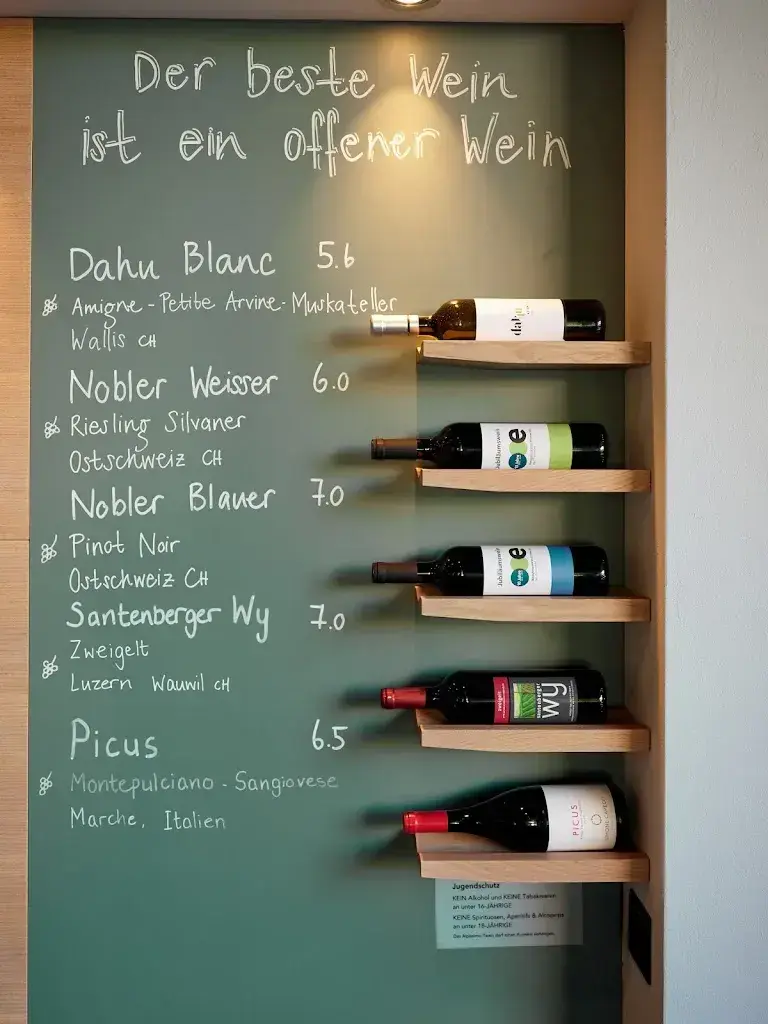 Der beste Wein
ist ein offener Wein
Dahu Blanc 5.6
Amigne - Petite Arvine - Muskateller
Wallis CH
Nobler Weisser 6.0
Riesling Silvaner
Ostschweiz CH
Nobler Blauer 7.0
Pinot Noir
Ostschweiz CH
Santenberger Wy 7.0
Zweigelt
Luzern Wauwil CH
Picus 6.5
Montepulciano - Sangiovese
Marche, Italien
dahu
Jubiläumswein
Jubiläumswein
zweigelt
santenberger
wy
PICUS
Jugendschutz
KEIN Alkohol und KEINE Tabakwaren
an unter 16-JÄHRIGE
KEINE Spirituosen, Aperitifs & Alcopops
an unter 18-JÄHRIGE